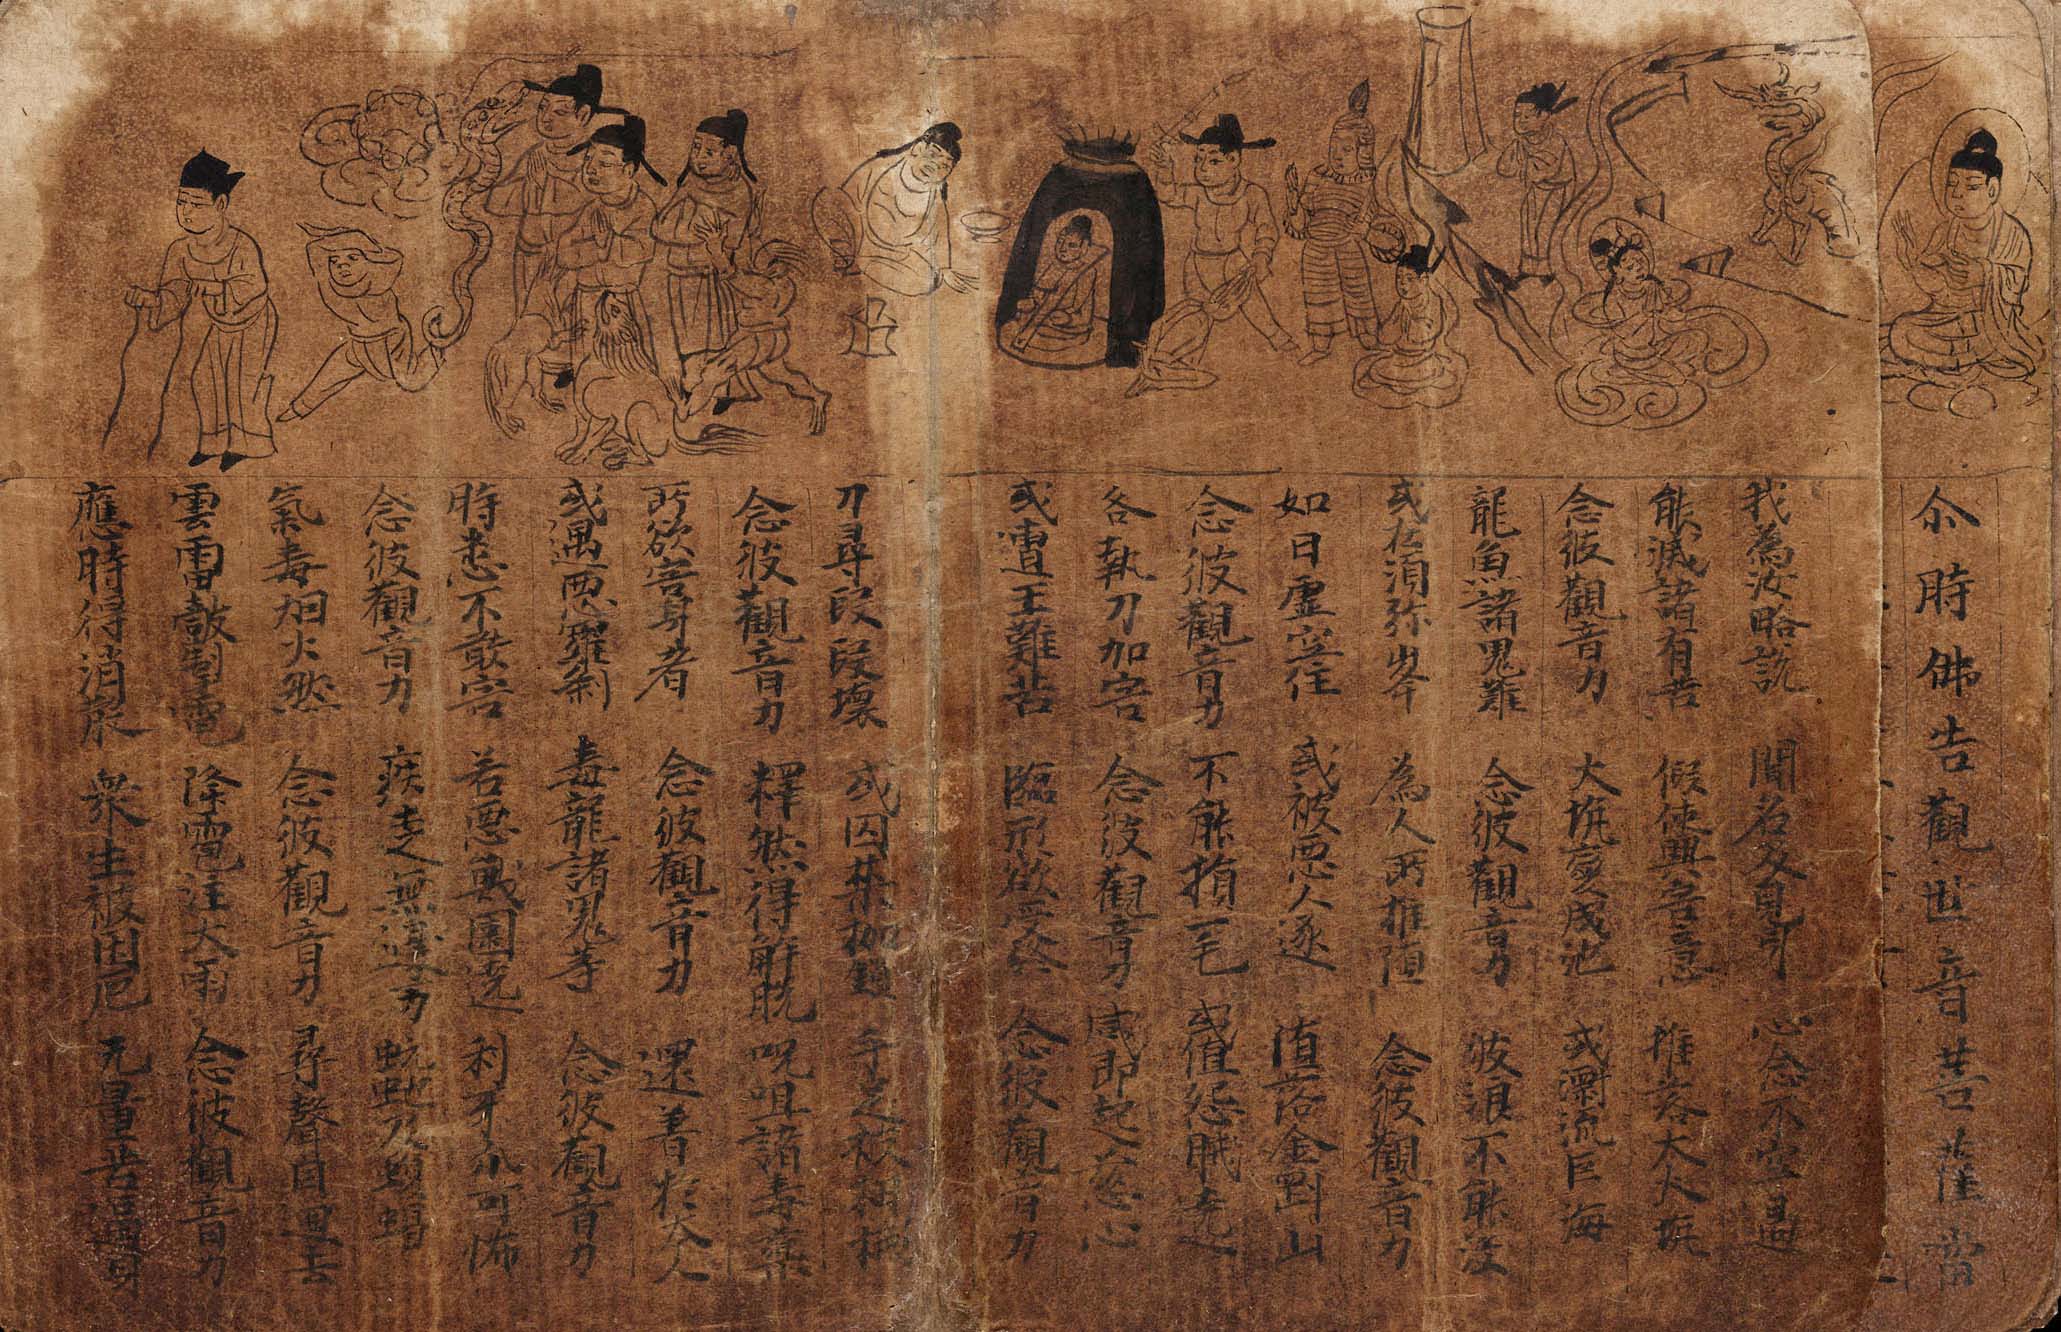 尒時佛告觀世音菩薩當
我為汝略説 聞名及見身 心念不空過
能滅諸有苦 假使興害意 推落大火坑
念彼觀音力 火坑變成池 或漂流巨海
龍魚諸鬼難 念彼觀音力 波浪不能没
或在須弥峯 為人所推堕 念彼觀音力
如日虚空住 或被悪人逐 堕落金剛山
念彼觀音力 不能損一毛 或值怨賊遶
各執刀加害 念彼觀音力 咸即起慈心
或遭王難苦 臨形欲受終 念彼觀音力
刀尋段段壞 或囚禁枷鎖 手足被杻械
念彼觀音力 釋然得解脱 呪咀諸毒藥
所欲害身者 念彼觀音力 還着於本人
或遇悪羅刹 毒龍諸鬼等 念彼觀音力
時悉不敢害 若悪獸圍遶 利牙爪可怖
念彼觀音力 疾走無邊方 蚖虵及蝮蝎
氣毒烟火然 念彼觀音力 尋聲自迴去
雲雷皷掣電 降雹澍大雨 念彼觀音力
應時得消散 衆生被困厄 无量苦逼身